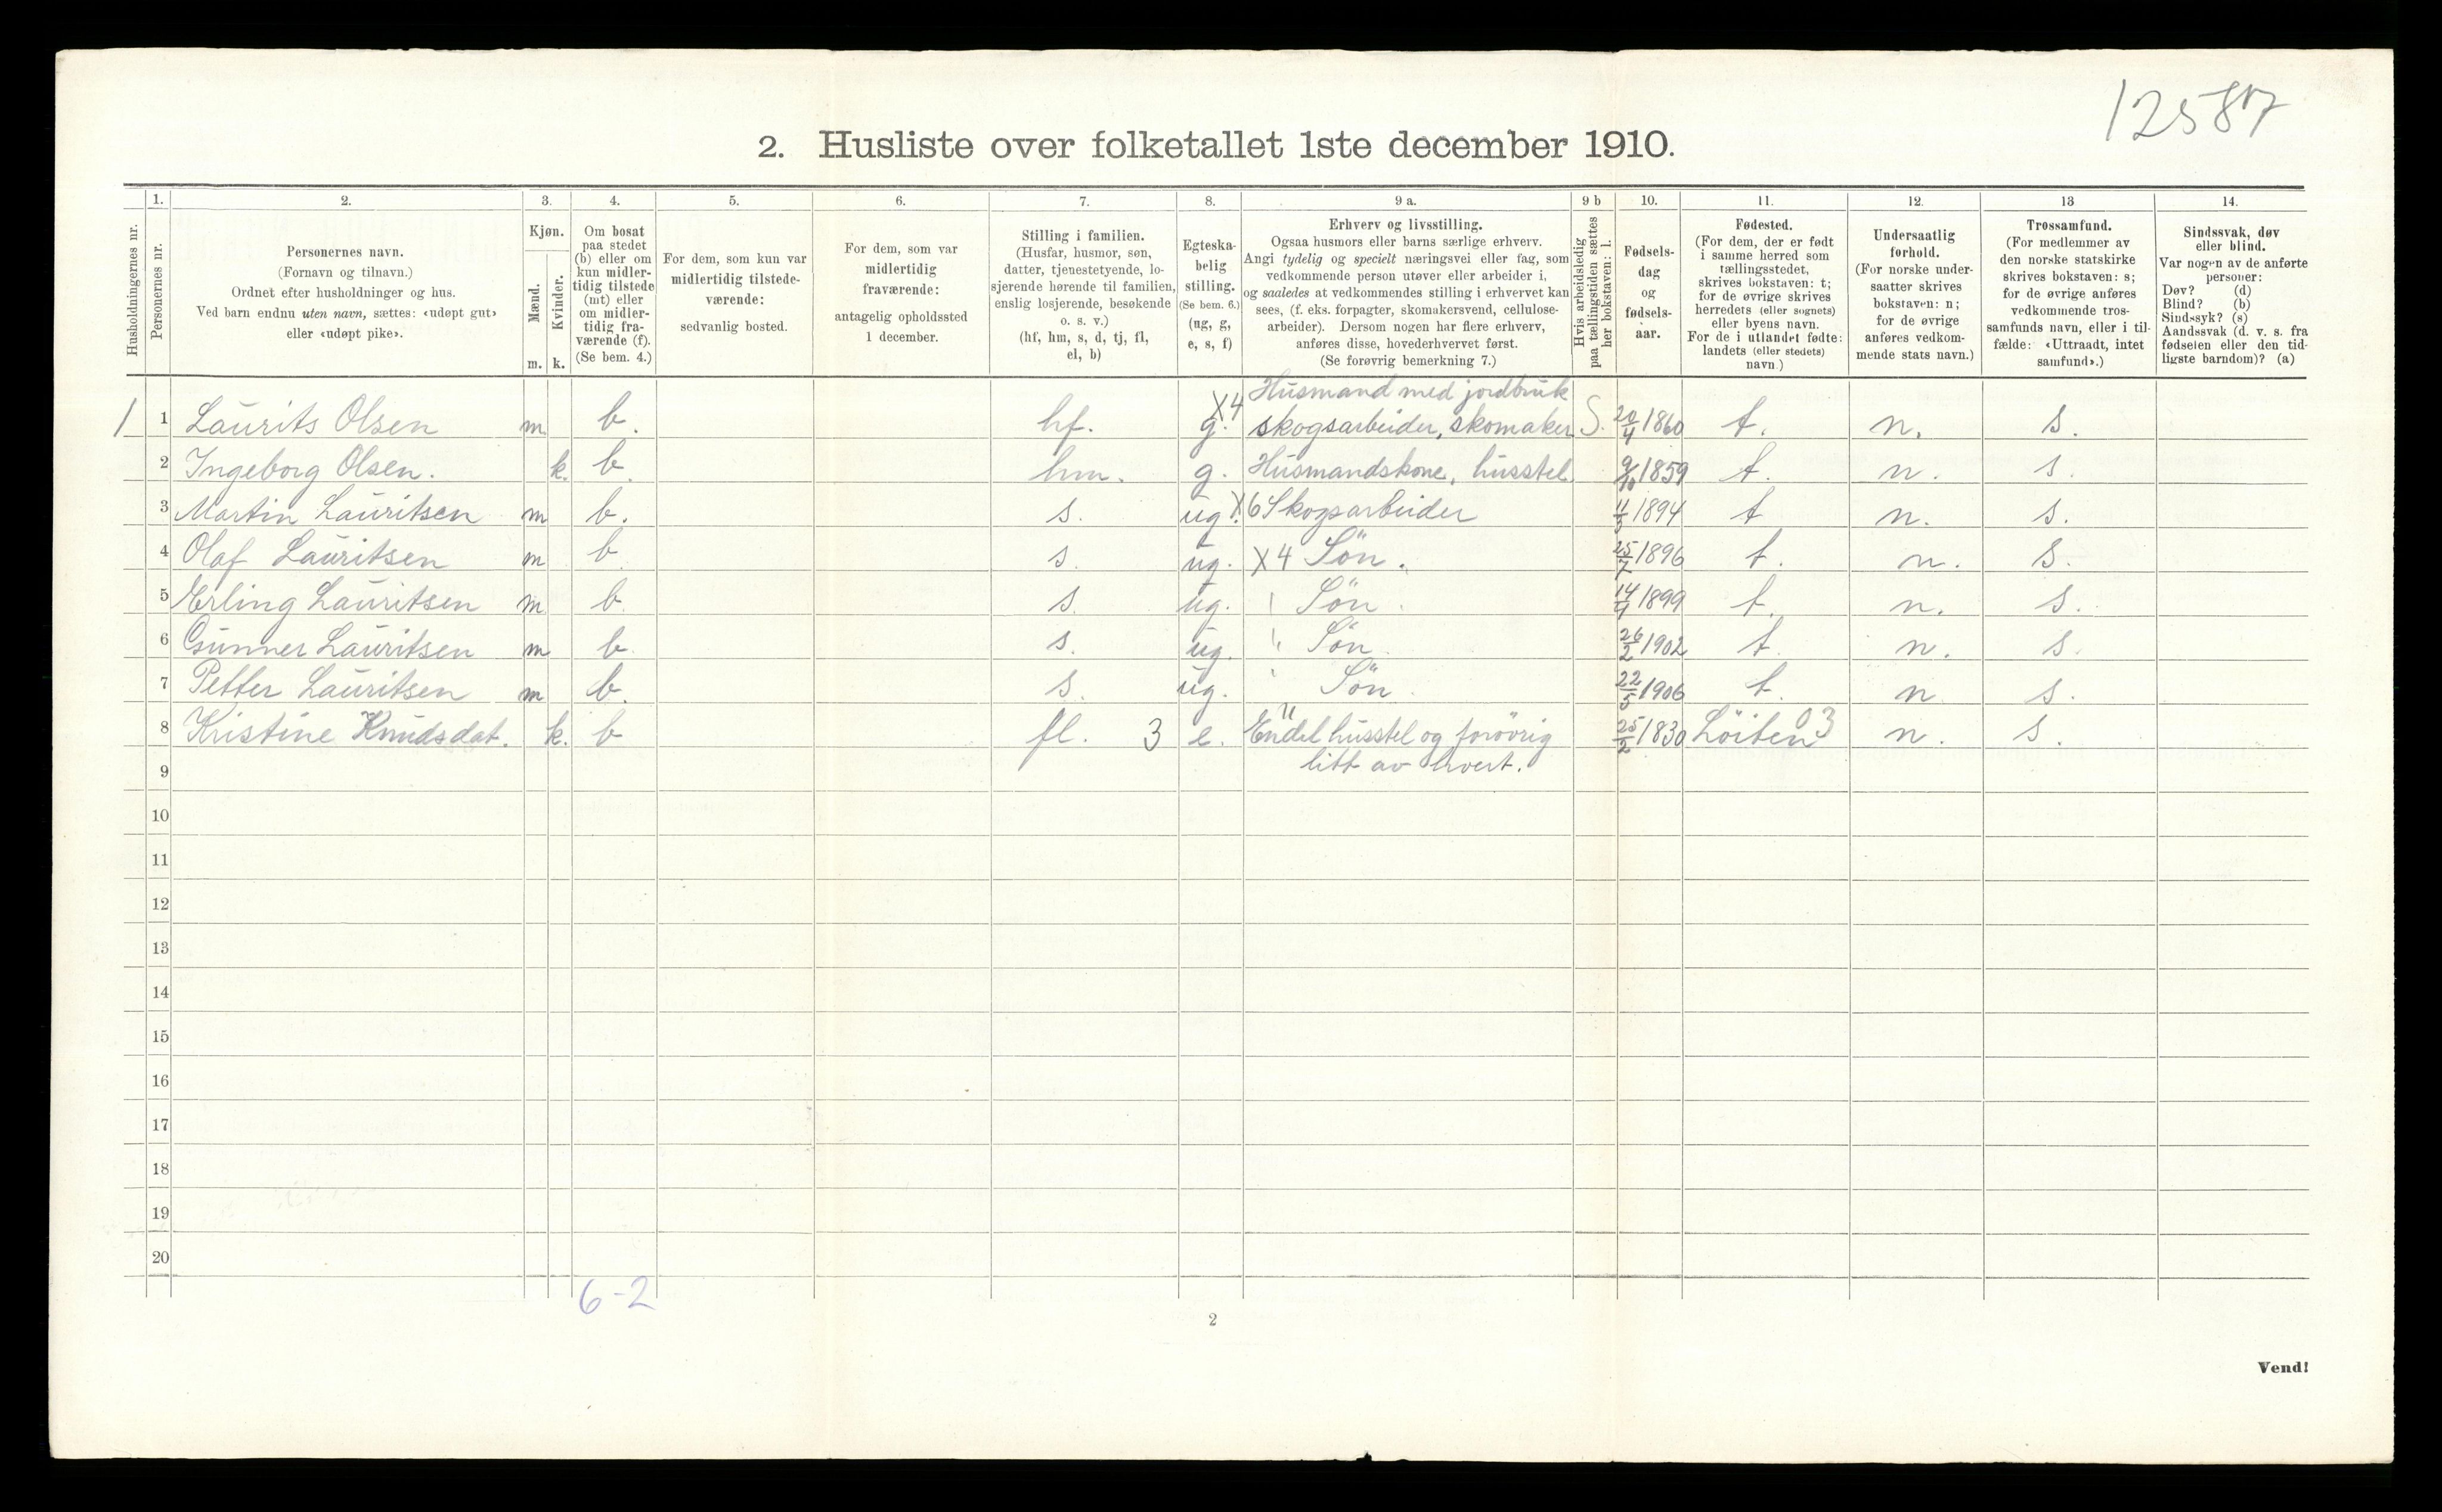 12587
2. Husliste over folketallet 1ste december 1910.
Husholdningernes nr.
1.
Personernes nr.
2.
Personernes navn.
(Fornavn og tilnavn.)
Ordnet efter husholdninger og hus.
Ved barn endnu uten navn, sættes: «udøpt gut»
eller «udøpt pike».
3.
Kjøn.
Mænd.
Kvinder.
m. k.
4.
Om bosat
paa stedet
(b) eller om
kun midler-
tidig tilstede
(mt) eller
om midler-
tidig fra-
værende (f).
(Se bem. 4.)
5.
For dem, som kun var
midlertidig tilstede-
værende:
sedvanlig bosted.
6.
For dem, som var
midlertidig
fraværende:
antagelig opholdssted
1 december.
7.
Stilling i familien.
(Husfar, husmor, søn,
datter, tjenestetyende, lo-
sjerende hørende til familien,
enslig losjerende, besøkende
o. s. v.)
(hf, hm, s, d, tj, fl,
el, b)
8.
Egteska-
belig
stilling.
(Se bem. 6.)
(ug, g,
e, s, f)
9 a.
Erhverv og livsstilling.
Ogsaa husmors eller barns særlige erhverv.
Angi tydelig og specielt næringsvei eller fag, som
vedkommende person utøver eller arbeider i,
og saaledes at vedkommendes stilling i erhvervet kan
sees, (f. eks. forpagter, skomakersvend, cellulose-
arbeider). Dersom nogen har flere erhverv,
anføres disse, hovederhvervet først.
(Se forøvrig bemerkning 7.)
9 b
Hvis arbeidsledig
paa tællingstiden sættes
her bokstaven: l.
10.
Fødsels-
dag
og
fødsels-
aar.
11.
Fødested.
(For dem, der er født
i samme herred som
tællingsstedet,
skrives bokstaven: t;
for de øvrige skrives
herredets (eller sognets)
eller byens navn.
For de i utlandet fødte:
landets (eller stedets)
navn.)
12.
Undersaatlig
forhold.
(For norske under-
saatter skrives
bokstaven: n;
for de øvrige
anføres vedkom-
mende stats navn.)
13
Trossamfund.
(For medlemmer av
den norske statskirke
skrives bokstaven: s;
for de øvrige anføres
vedkommende tros-
samfunds navn, eller i til-
fælde: «Uttraadt, intet
samfund».)
14.
Sindssvak, døv
eller blind.
Var nogen av de anførte
personer:
Døv? (d)
Blind? (b)
Sindssyk? (s)
Aandssvak (d. v. s. fra
fødselen eller den tid-
ligste barndom)? (a)
Husmand med jordbruk
1 1 Laurits Olsen m b. hf. X4 g. skogsarbeider, skomaker S. 20/4 1860 t. n. s.
2 Ingeborg Olsen. k. b. hm. g. Husmandskone, husstel 9/10 1859 t. n. s.
3 Martin Lauritsen m b. s. ug. X6 Skogsarbeider 11/5 1894 t n. s.
4 Olaf Lauritsen m b s. ug. X4 Sön. 25/7 1896 t. n. s.
5 Erling Lauritsen m b. s. ug. " Sön. 14/4 1899 t. n. s.
6 Gunner Lauritsen m b. s. ug. " Sön. 26/2 1902 t. n. s.
7 Petter Lauritsen m b. s. ug. " Sön. 22/5 1906 t. n s.
8 Kristine Knudsdat. k. b fl. 3 e. Endel husstel og forövrig 25/2 1830 Löiten 03 n. s.
9 litt av hvert.
10
11
12
13
14
15
16
17
18
19
20
6-2
2
Vend!